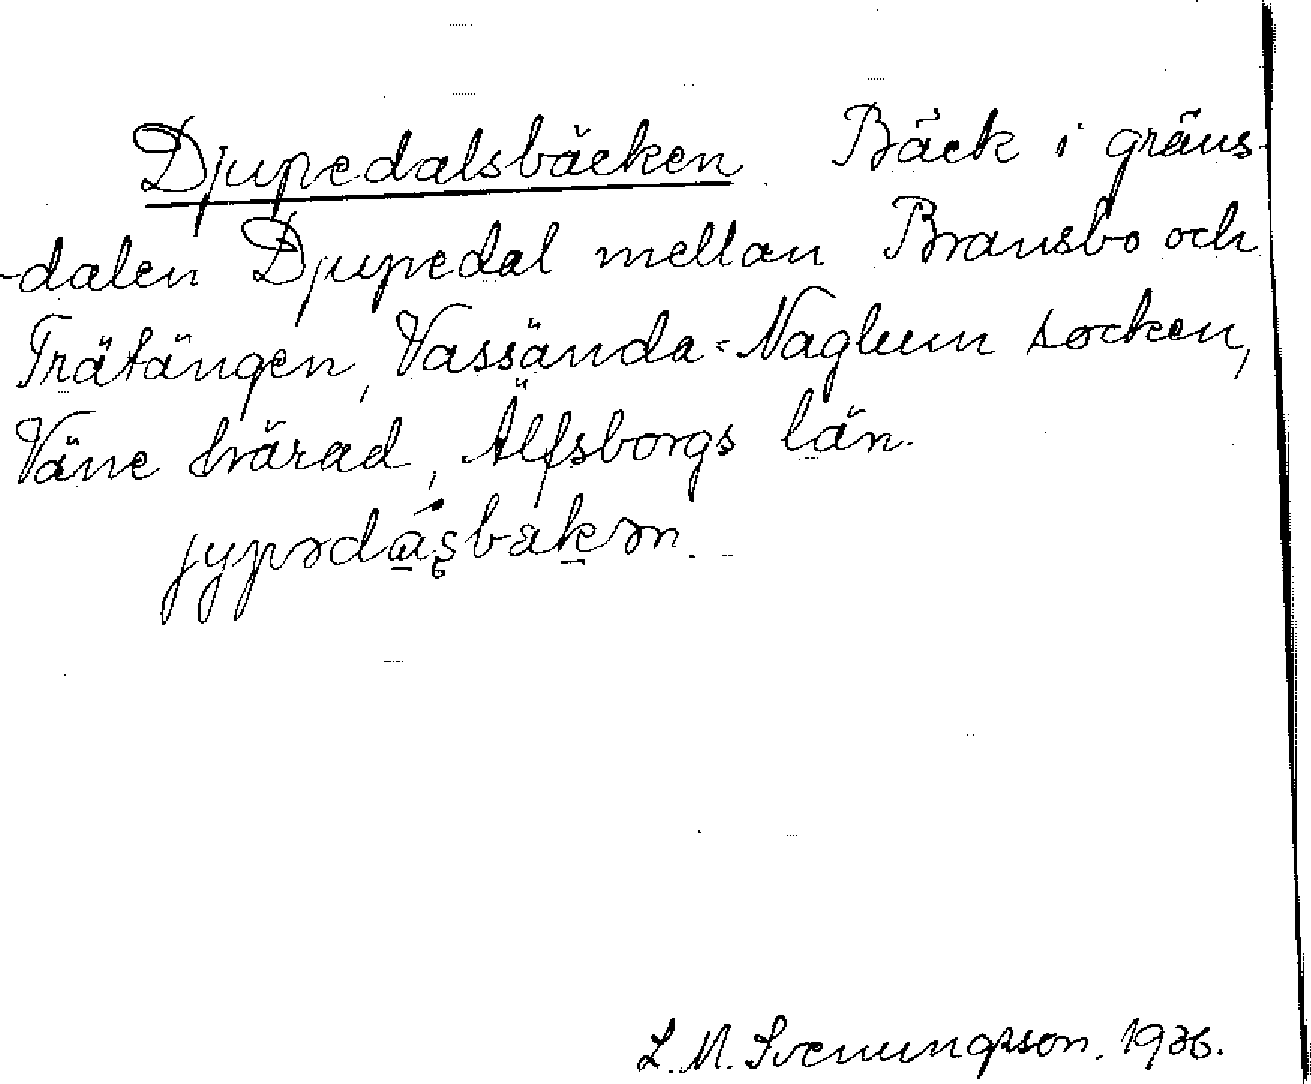 Djupedalsbäcken. Bäck i gräns-
-dalen Djupedal mellan Bransbo och
Trätängen, Vassända-Naglum socken,
Väne härad, Älfsborgs län.
L. M. Svenungsson. 1936.